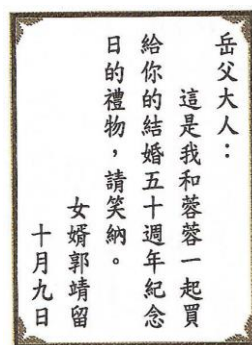 岳父大人：
這是我和蓉蓉一起買
給你的結婚五十週年紀念
日的禮物，請笑納。
女婿郭靖留
十月九日